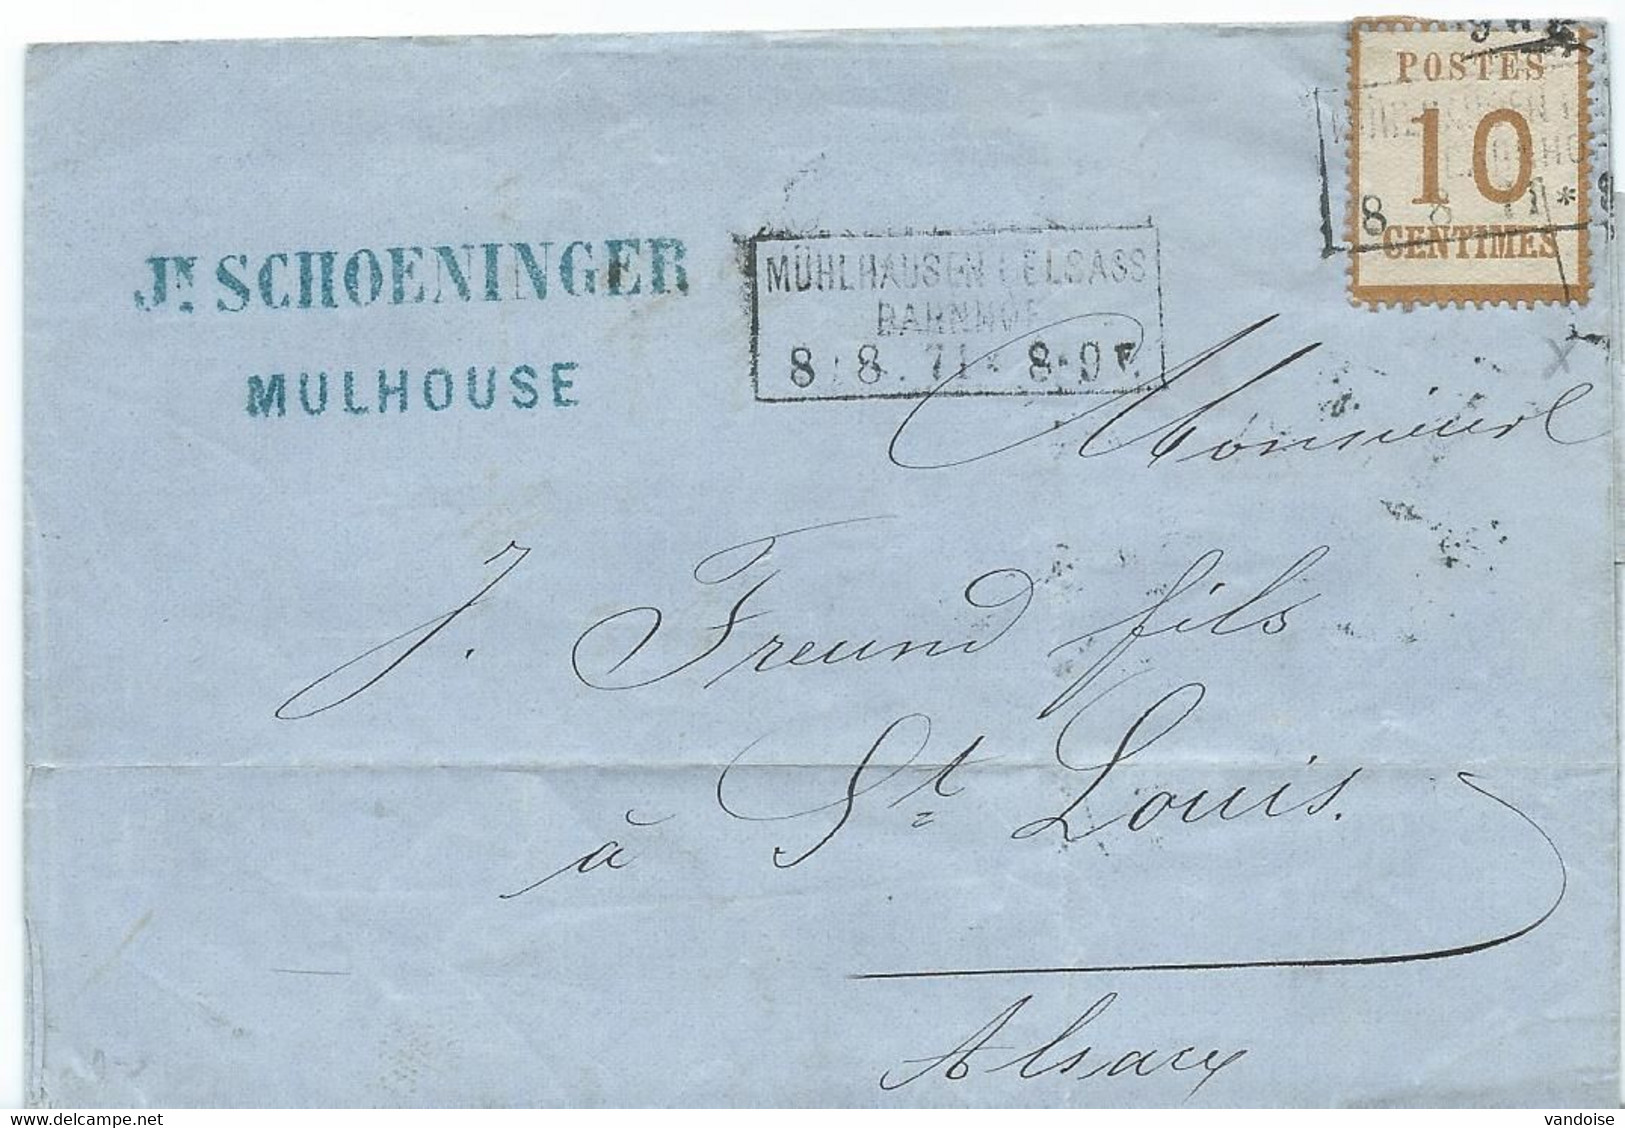 POSTES
10
CENTIMES
8 8 71 * 8
Jn SCHOENINGER
MULHOUSE
MÜHLHAUSEN I ELSASS
BAHNHOF
8 8 . 71 * 8-9 F.
Monsieur
J. Freund fils
à St Louis.
Alsace
© vandoise